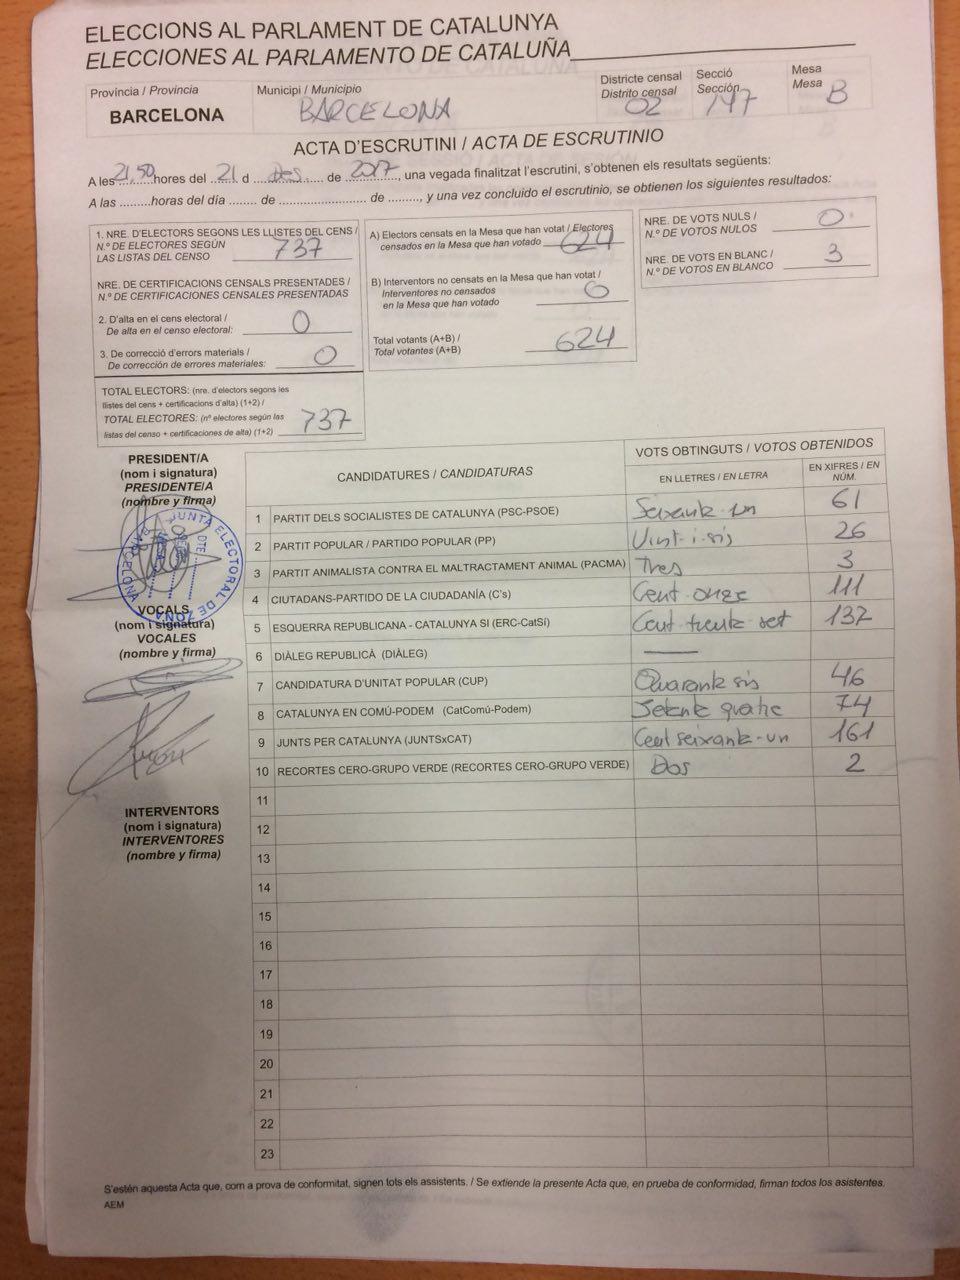 ELECCIONS AL PARLAMENT DE CATALUNYA
ELECCIONES AL PARLAMENTO DE CATALUÑA
Província / Provincia
BARCELONA
Municipi / Municipio
BARCELONA
Districte censal
Distrito censal
02
Secció
Sección
147
Mesa
Mesa
B
ACTA D'ESCRUTINI / ACTA DE ESCRUTINIO
A les 21,50 hores del 21 d Des de 2017, una vegada finalitzat l'escrutini, s'obtenen els resultats següents:
A las .........horas del día ....... de ............................ de ........, y una vez concluido el escrutinio, se obtienen los siguientes resultados:
1. NRE. D'ELECTORS SEGONS LES LLISTES DEL CENS /
N.º DE ELECTORES SEGÚN
LAS LISTAS DEL CENSO 737
NRE. DE CERTIFICACIONS CENSALS PRESENTADES /
N.º DE CERTIFICACIONES CENSALES PRESENTADAS
2. D'alta en el cens electoral /
De alta en el censo electoral: 0
3. De correcció d'errors materials /
De corrección de errores materiales: 0
TOTAL ELECTORS: (nre. d'electors segons les
llistes del cens + certificacions d'alta) (1+2) /
TOTAL ELECTORES: (nº electores según las
listas del censo + certificaciones de alta) (1+2) 737
A) Electors censats en la Mesa que han votat / Electores
censados en la Mesa que han votado 624
B) Interventors no censats en la Mesa que han votat /
Interventores no censados
en la Mesa que han votado 0
Total votants (A+B) /
Total votantes (A+B) 624
NRE. DE VOTS NULS /
N.º DE VOTOS NULOS 0
NRE. DE VOTS EN BLANC /
N.º DE VOTOS EN BLANCO 3
PRESIDENT/A
(nom i signatura)
PRESIDENTE/A
(nombre y firma)
JUNTA ELECTORAL DE ZONA
BARCELONA
VOCALS
(nom i signatura)
VOCALES
(nombre y firma)
INTERVENTORS
(nom i signatura)
INTERVENTORES
(nombre y firma)
CANDIDATURES / CANDIDATURAS
VOTS OBTINGUTS / VOTOS OBTENIDOS
EN LLETRES / EN LETRA
EN XIFRES / EN NÚM.
1 PARTIT DELS SOCIALISTES DE CATALUNYA (PSC-PSOE) Seixanta-un 61
2 PARTIT POPULAR / PARTIDO POPULAR (PP) Vint-i-sis 26
3 PARTIT ANIMALISTA CONTRA EL MALTRACTAMENT ANIMAL (PACMA) Tres 3
4 CIUTADANS-PARTIDO DE LA CIUDADANÍA (C's) Cent onze 111
5 ESQUERRA REPUBLICANA - CATALUNYA SI (ERC-CatSí) Cent trenta set 137
6 DIÀLEG REPUBLICÀ (DIÀLEG)
7 CANDIDATURA D'UNITAT POPULAR (CUP) Quaranta sis 46
8 CATALUNYA EN COMÚ-PODEM (CatComú-Podem) Setanta quatre 74
9 JUNTS PER CATALUNYA (JUNTSxCAT) Cent seixanta-un 161
10 RECORTES CERO-GRUPO VERDE (RECORTES CERO-GRUPO VERDE) Dos 2
11
12
13
14
15
16
17
18
19
20
21
22
23
S'estén aquesta Acta que, com a prova de conformitat, signen tots els assistents. / Se extiende la presente Acta que, en prueba de conformidad, firman todos los asistentes.
AEM